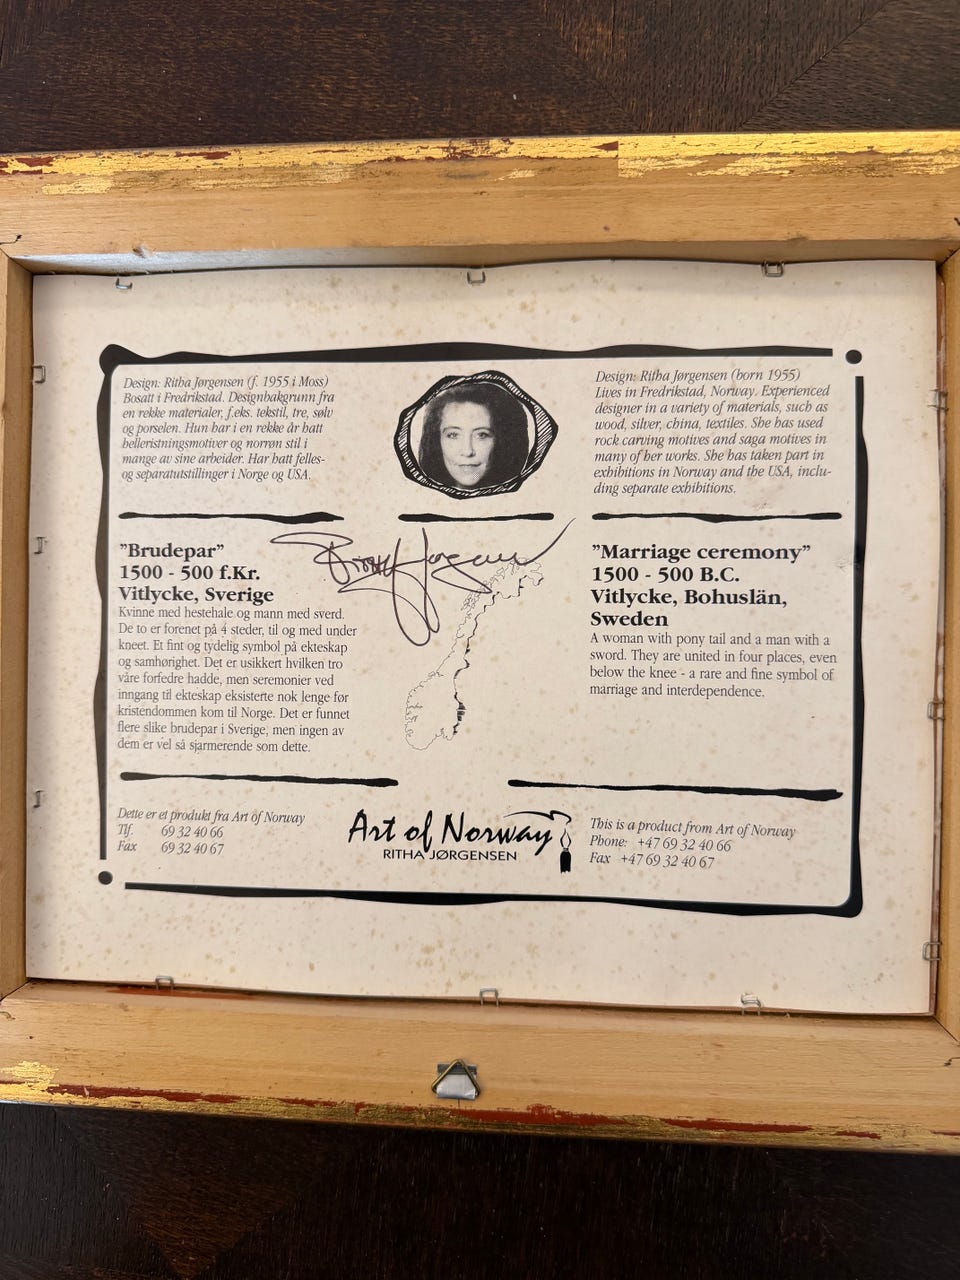 Design: Ritha Jørgensen (f. 1955 i Moss)
Bosatt i Fredrikstad. Designbakgrunn fra
en rekke materialer, f.eks. tekstil, tre, sølv
og porselen. Hun har i en rekke år hatt
helleristningsmotiver og norrøn stil i
mange av sine arbeider. Har hatt felles-
og separatutstillinger i Norge og USA.
Design: Ritha Jørgensen (born 1955)
Lives in Fredrikstad, Norway. Experienced
designer in a variety of materials, such as
wood, silver, china, textiles. She has used
rock carving motives and saga motives in
many of her works. She has taken part in
exhibitions in Norway and the USA, inclu-
ding separate exhibitions.
"Brudepar"
1500 - 500 f.Kr.
Vitlycke, Sverige
Kvinne med hestehale og mann med sverd.
De to er forenet på 4 steder, til og med under
kneet. Et fint og tydelig symbol på ekteskap
og samhørighet. Det er usikkert hvilken tro
våre forfedre hadde, men seremonier ved
inngang til ekteskap eksisterte nok lenge før
kristendommen kom til Norge. Det er funnet
flere slike brudepar i Sverige, men ingen av
dem er vel så sjarmerende som dette.
"Marriage ceremony"
1500 - 500 B.C.
Vitlycke, Bohuslän,
Sweden
A woman with pony tail and a man with a
sword. They are united in four places, even
below the knee - a rare and fine symbol of
marriage and interdependence.
Dette er et produkt fra Art of Norway
Tlf. 69 32 40 66
Fax 69 32 40 67
Art of Norway
RITHA JØRGENSEN
This is a product from Art of Norway
Phone: +47 69 32 40 66
Fax +47 69 32 40 67